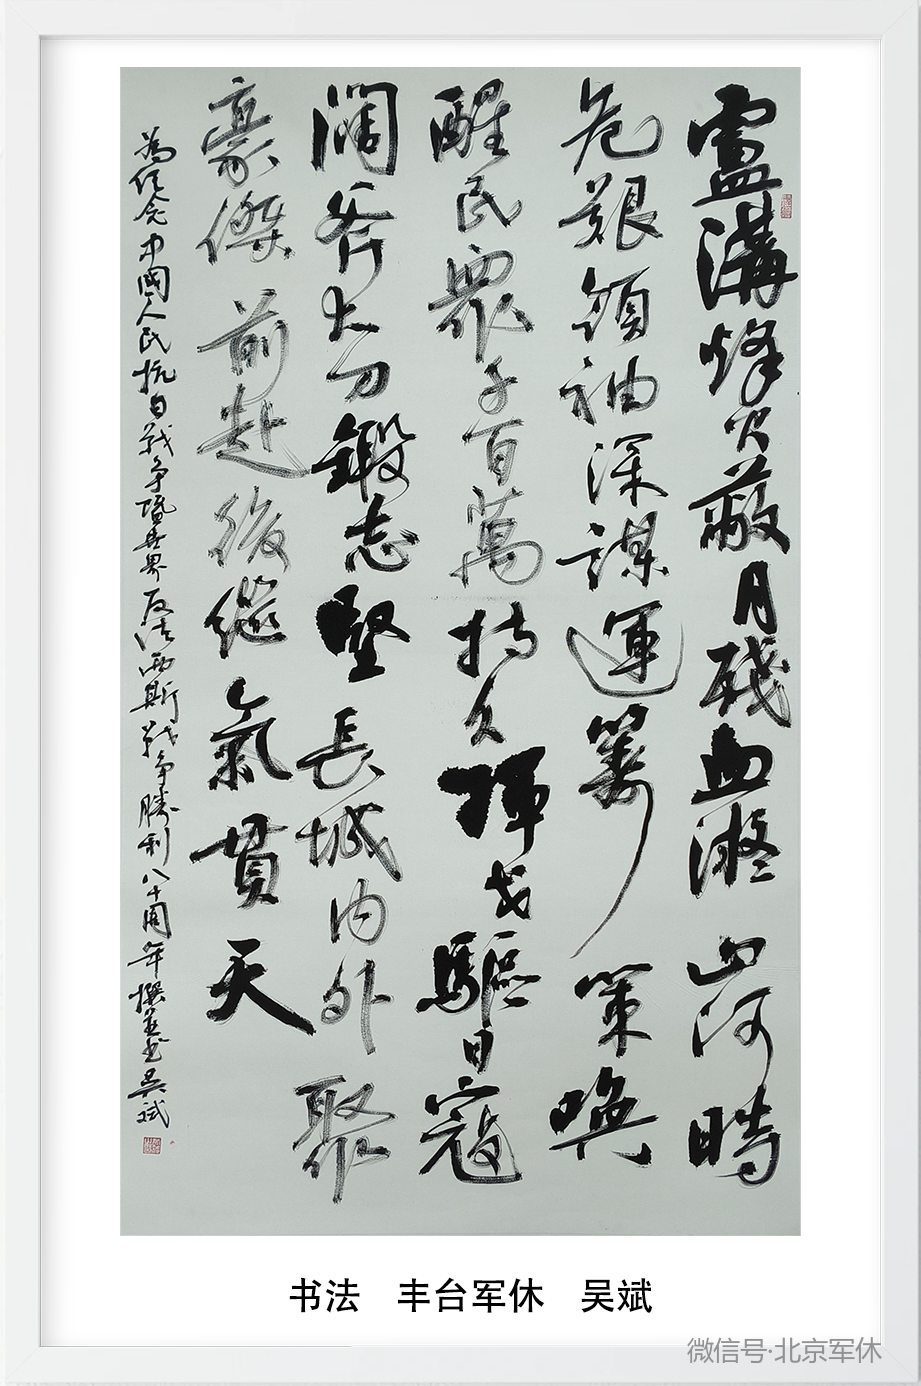 盧溝烽火蔽月殘血凝山河時
危艱領袖深謀運籌策喚
醒民眾千百萬持久揮戈驅日寇
闊斧大刀鍛志堅長城内外聚
豪傑前赴後繼氣貫天
為纪念中國人民抗日战争暨世界反法西斯战争勝利八十周年撰並书吴斌
书法 丰台军休 吴斌
微信号·北京军休